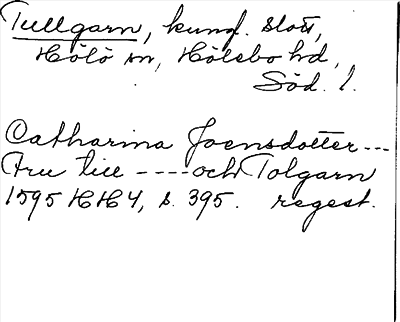 Tullgarn, kungl. slott,
Hölö sn, Hölebo hd,
Söd. l.
Catharina Joensdotter---
Fru till ----och Tolgarn
1595 HH 4, s. 395. regest.